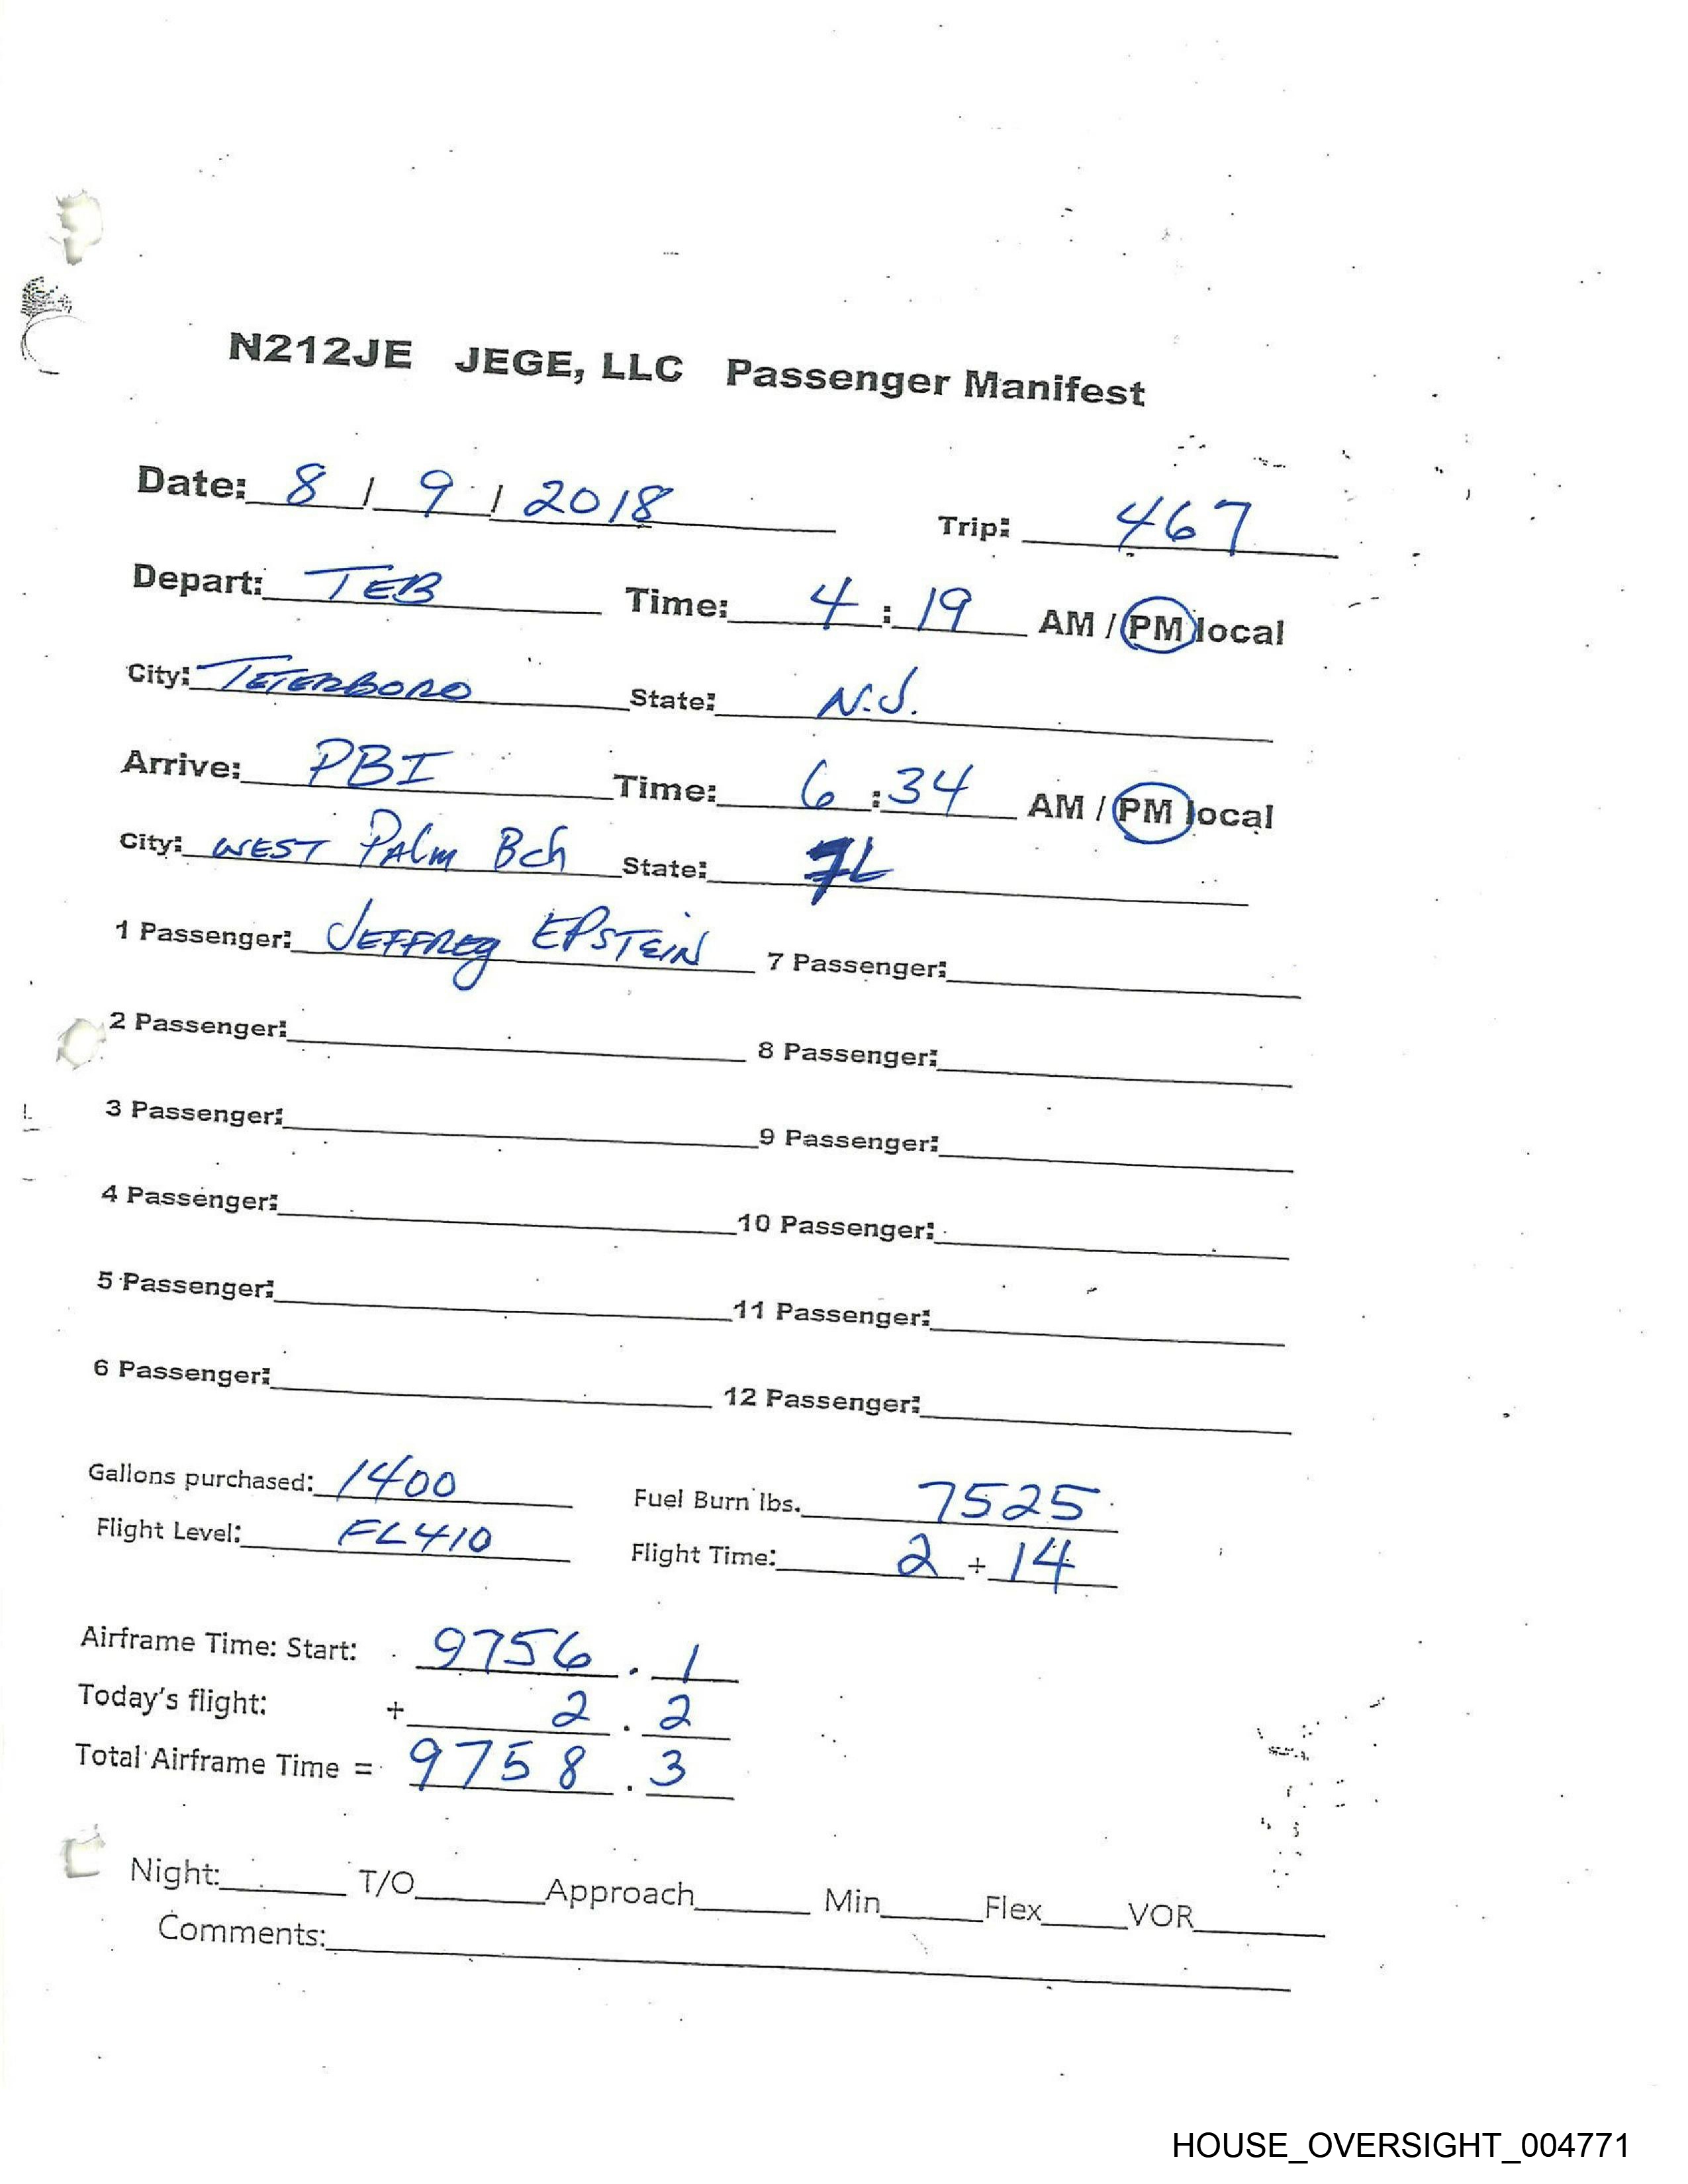 N212JE JEGE, LLC Passenger Manifest
Date: 8 / 9 / 2018 Trip: 467
Depart: TEB Time: 4 : 19 AM / PM local
City: TETERBORO State: N.J.
Arrive: PBI Time: 6 : 34 AM / PM local
City: WEST PALM Bch State: FL
1 Passenger: JEFFREY EPSTEIN 7 Passenger:
2 Passenger: 8 Passenger:
3 Passenger: 9 Passenger:
4 Passenger: 10 Passenger:
5 Passenger: 11 Passenger:
6 Passenger: 12 Passenger:
Gallons purchased: 1400 Fuel Burn lbs. 7525
Flight Level: FL410 Flight Time: 2 + 14
Airframe Time: Start: 9756 . 1
Today's flight: + 2 . 2
Total Airframe Time = 9758 . 3
Night: T/O Approach Min Flex VOR
Comments:
HOUSE_OVERSIGHT_004771